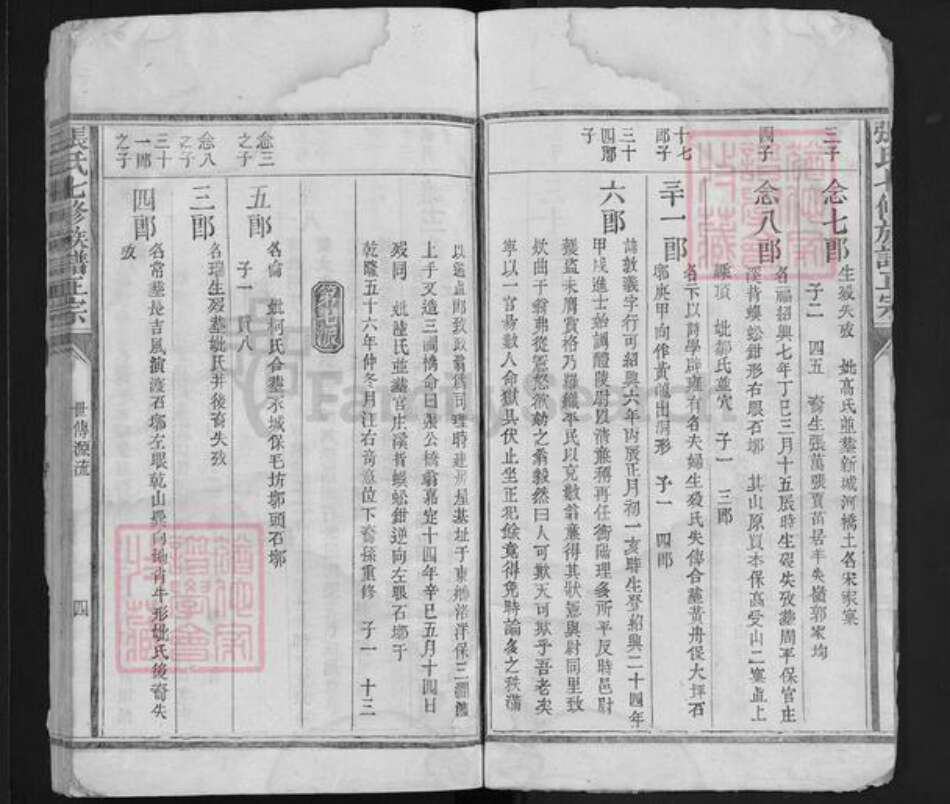 張氏七修族譜正宗
三子
念七郎
生殁失攷 妣高氏並塟新城河橋土名宋家窠
子二 四五 裔生張萬張賈苗居半失嶺郭家坳
四子
念八郎
名福紹興七年丁巳三月十五辰時生殁失攷塟周平保官庄
溪背蜈蚣鉗形右眼石塚 其山原買本保高受山二窠直上
頂 妣鄒氏並穴 子一 三郎
十七郎子
三十一郎
名下以詩學 有名夫婦生殁氏失傳合塟黃舟保大坪石
塚庚甲向作黃龍出洞形 子一 四郎
三十四郎子
六郎
諱敦義字行可紹興六年丙辰正月初一亥時生登紹興二十四年
甲戌進士始調醴陵尉以清 稱再任衡陽理多所平反時邑尉
獲盜未膺賞格乃羅織平民以充數翁 得其狀 與尉同里致
欵曲于翁弗從 怒 劾之翁毅然曰人可欺天可欺乎吾老矣
寧以一官易數人命獄具伏止坐正犯餘竟得免時論多之秩滿
以通直郎致政翁爲司理時建 屋基址于東 洋保三澗
上手又造三 橋命曰張公橋翁嘉定十四年辛巳五月十四日
殁同 妣陸氏並塟官庄溪背蜈蚣鉗逆向左眼石塚于
乾隆五十六年仲冬月江右 位下裔孫重修 子一 十三
第七派
念三之子
五郎
名倫 妣柯氏合塟永城保毛坊塚頭石塚
子一 八
念八之子
三郎
名瑞生殁塟妣氏并後裔失攷
三十一郎之子
四郎
名常塟長吉風演渡石塚左眼乾山巽向地肖牛形妣氏後裔失
攷
張氏七修族譜正宗
世傳源流
四
FamilySearch